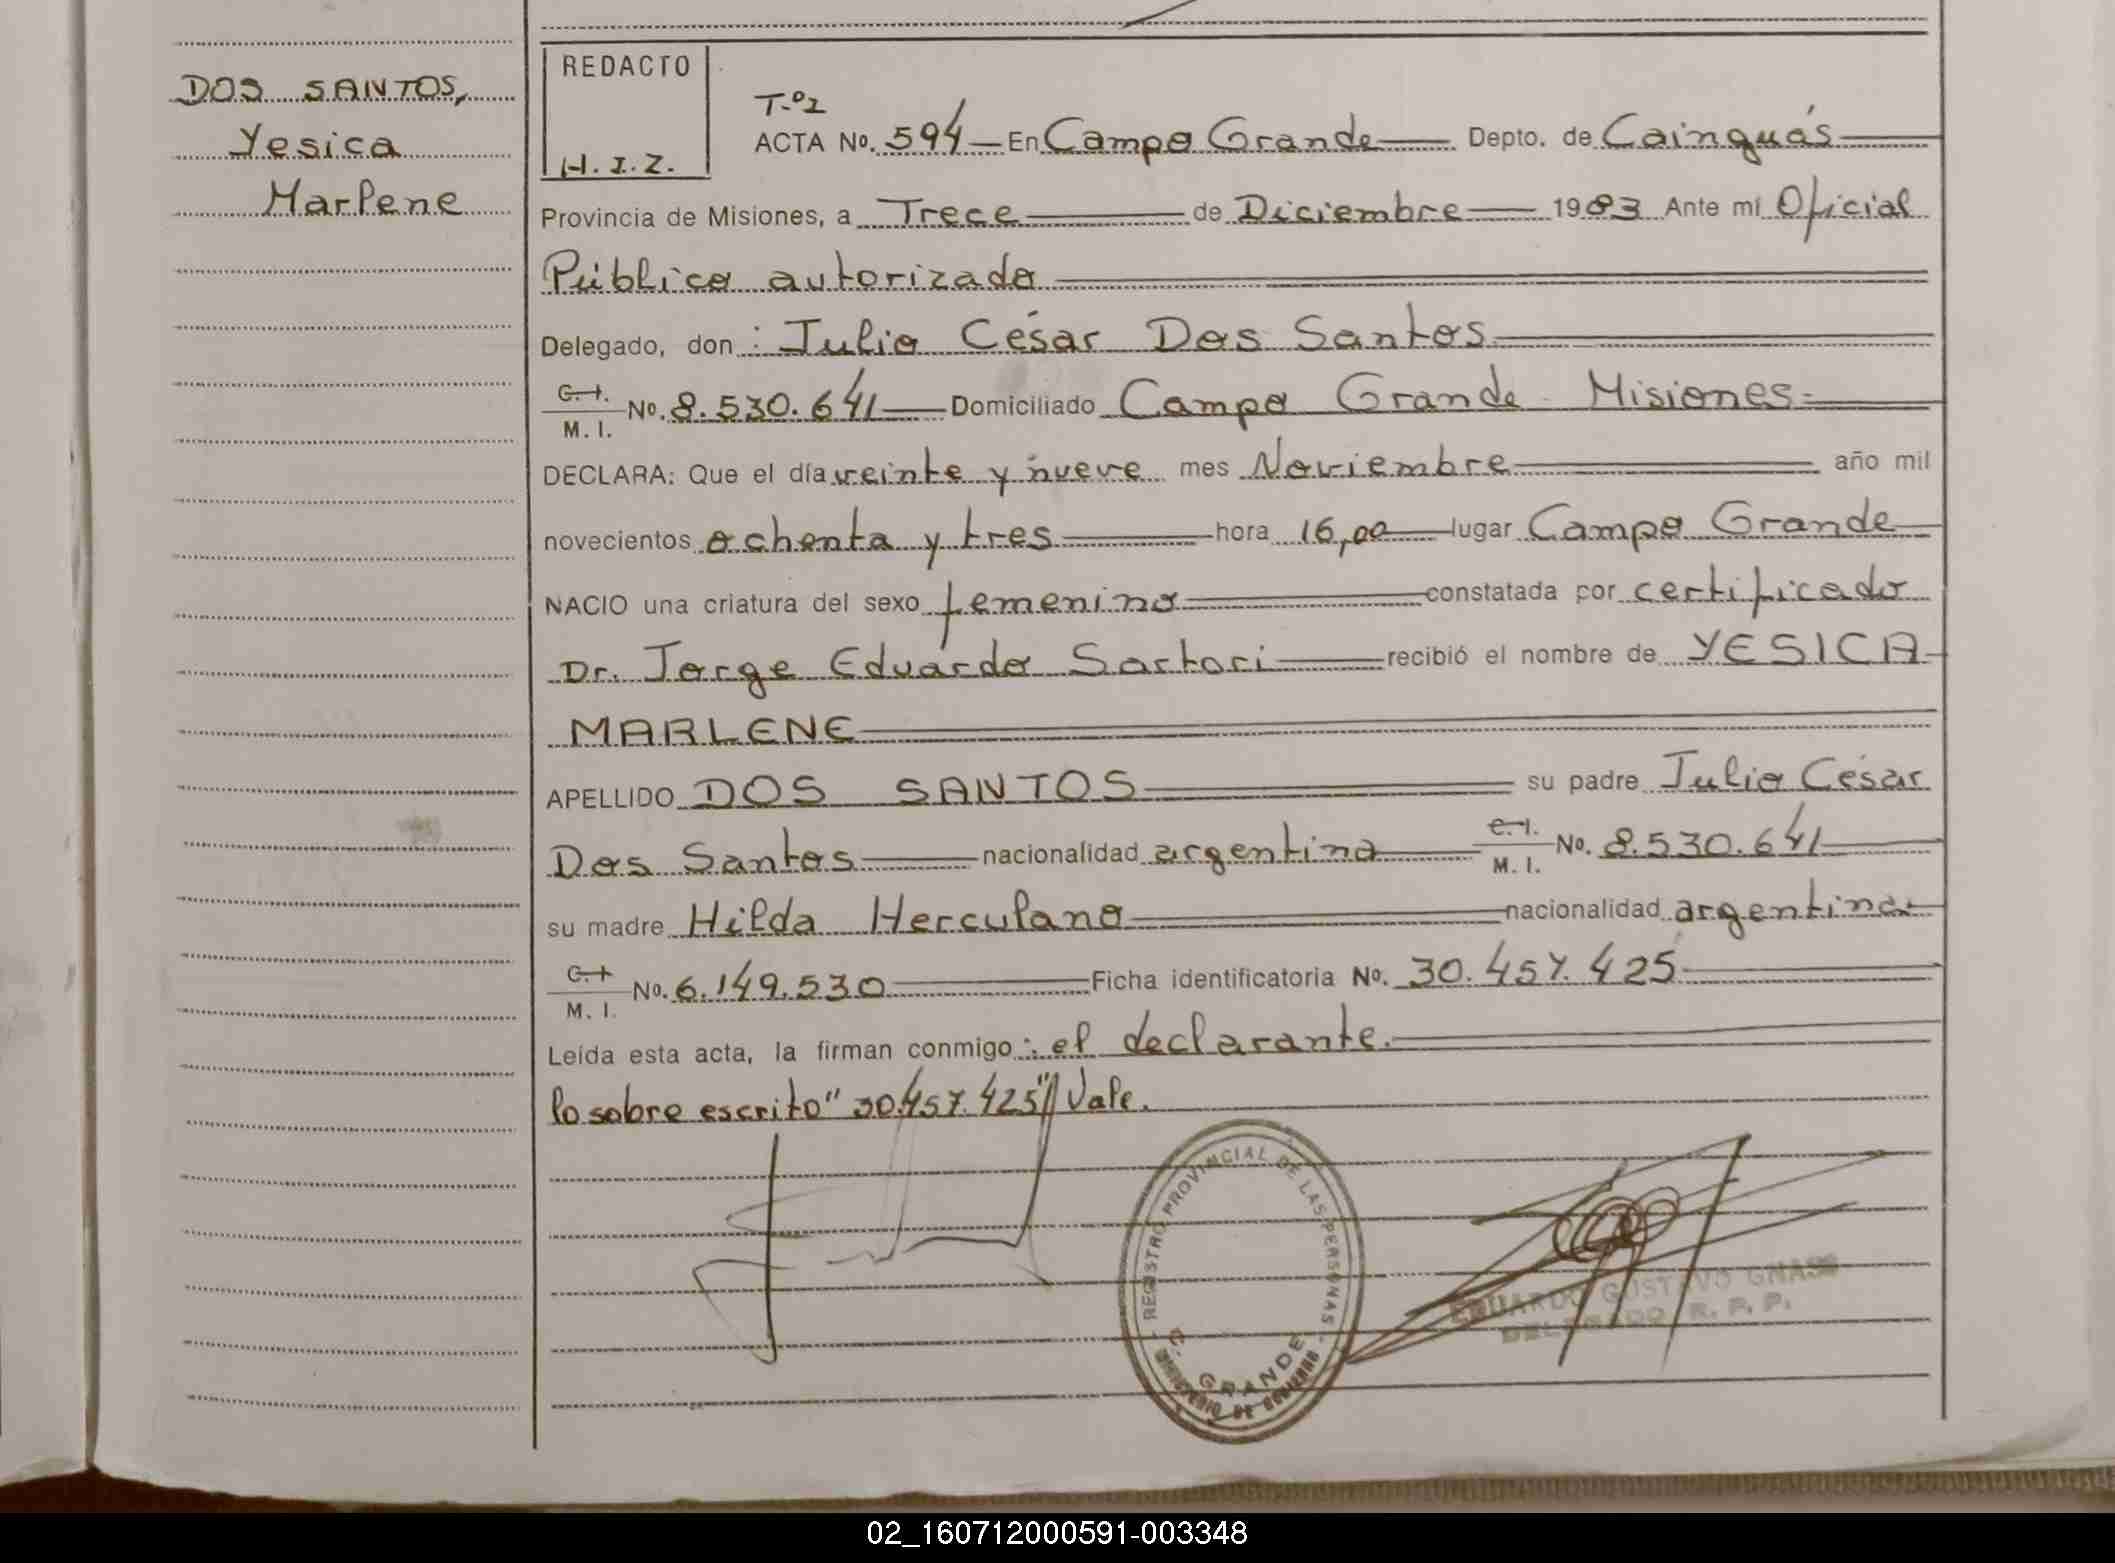 DOS SANTOS,
Yesica
Marlene
REDACTO
H.I.Z.
T.º2
ACTA No. 594 En Campo Grande Depto. de Cainguás
Provincia de Misiones, a Trece de Diciembre 1983 Ante mí Oficial
Público autorizado
Delegado, don : Julio César Dos Santos
C.I. M.I. No. 8.530.641 Domiciliado Campo Grande Misiones
DECLARA: Que el día veinte y nueve mes Noviembre año mil
novecientos ochenta y tres hora 16,00 lugar Campo Grande
NACIO una criatura del sexo femenino constatada por certificado
Dr. Jorge Eduardo Sartori recibió el nombre de YESICA
MARLENE
APELLIDO DOS SANTOS su padre Julio César
Dos Santos nacionalidad argentina C.I. M.I. No. 8.530.641
su madre Hilda Herculano nacionalidad argentina
C.I. M.I. No. 6.149.530 Ficha identificatoria No. 30.457.425
Leída esta acta, la firman conmigo : el declarante.
lo sobre escrito "30.457.425" Vale.
REGISTRO PROVINCIAL DE LAS PERSONAS
C. GRANDE
MINISTERIO DE GOBIERNO
EDUARDO GUSTAVO
DELEGADO R. P. P.
02_160712000591-003348